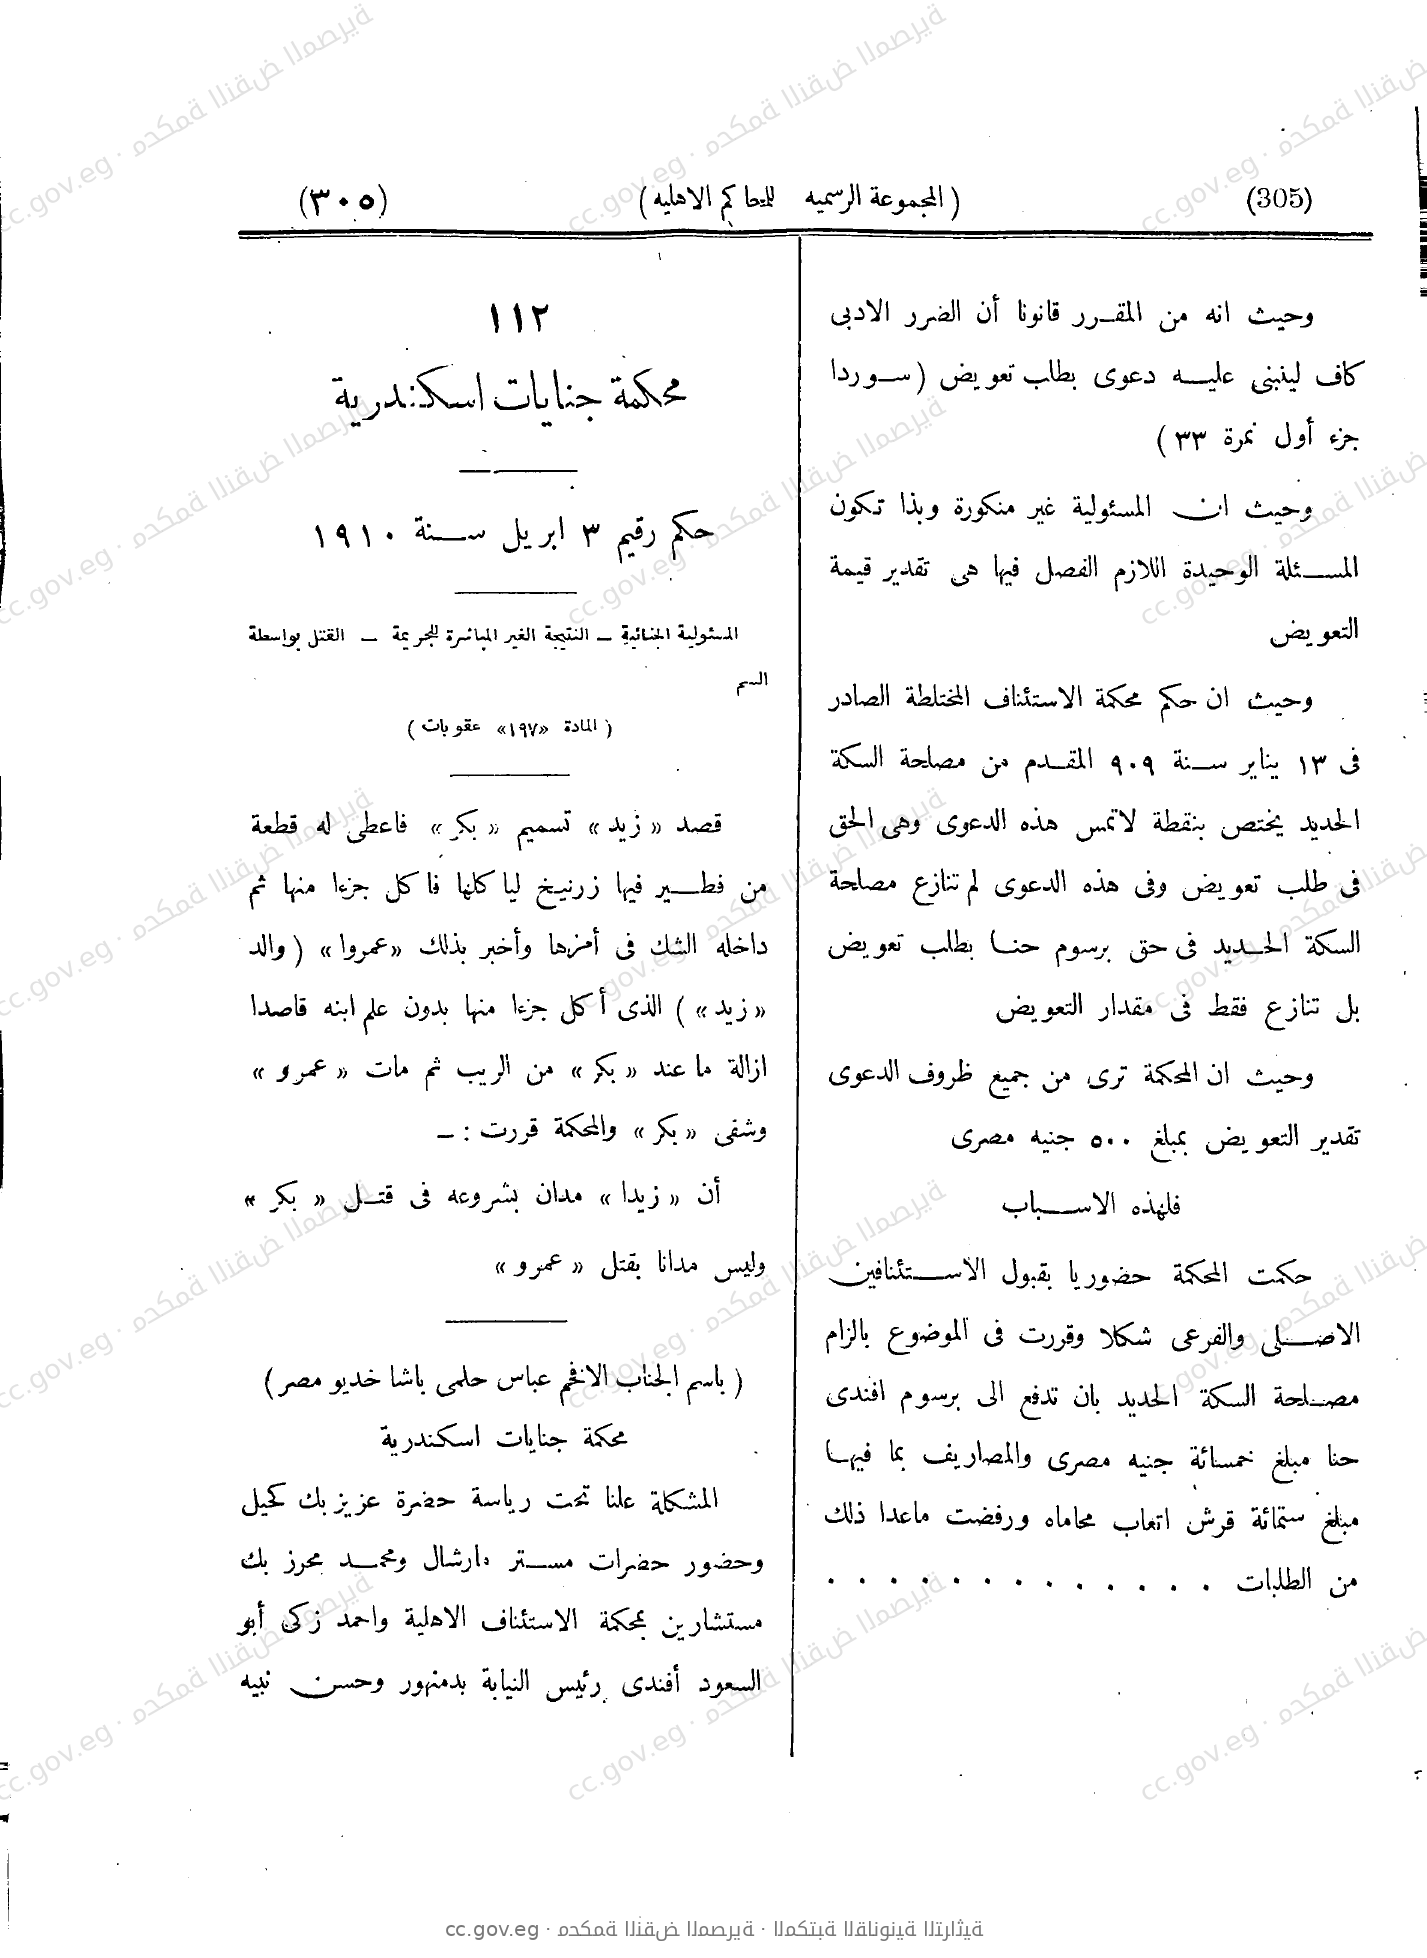 (305) ( المجموعة الرسميه للمحاكم الاهليه ) (٣٠٥)
وحيث انه من المقـرر قانونا أن الضرر الادبى
كاف لينبنى عليـه دعوى بطلب تعويض ( سـوردا
جزء أول نمرة ٣٣ )
وحيث ان المسئولية غير منكورة وبذا تكون
المسـئلة الوحيدة اللازم الفصل فيها هى تقدير قيمة
التعويض
وحيث ان حكم محكمة الاستئناف المختلطة الصادر
فى ١٣ يناير سـنة ٩٠٩ المقـدم من مصلحة السكة
الحديد يختص بنقطة لاتمس هذه الدعوى وهى الحق
فى طلب تعويض وفى هذه الدعوى لم تنازع مصلحة
السكة الحـديد فى حق برسوم حنـا بطلب تعويض
بل تنازع فقط فى مقدار التعويض
وحيث ان المحكمة ترى من جميع ظروف الدعوى
تقدير التعويض بمبلغ ٥٠٠ جنيه مصرى
فلهذه الاسـباب
حكمت المحكمة حضوريا بقبول الاسـتئنافين
الاصـلى والفرعى شكلا وقررت فى الموضوع بالزام
مصـلحة السكة الحديد بان تدفع الى برسوم افندى
حنا مبلغ خمسمائة جنيه مصرى والمصاريف بما فيهـا
مبلغ ستمائة قرش اتعاب محاماه ورفضت ماعدا ذلك
من الطلبات . . . . . . . . . . . . .
١١٢
محكمة جنايات اسكندرية
حكم رقيم ٣ ابريل سـنة ١٩١٠
المسئولية الجنائية – النتيجة الغير المباشرة للجريمة – القتل بواسطة
السم
( المادة «١٩٧» عقوبات )
قصد « زيد » تسميم « بكر » فاعطى له قطعة
من فطـير فيها زرنيخ لياكلها فاكل جزءا منها ثم
داخله الشك فى أمرها وأخبر بذلك «عمروا» ( والد
« زيد » ) الذى أكل جزءا منها بدون علم ابنه قاصدا
ازالة ما عند « بكر » من الريب ثم مات « عمرو »
وشفى « بكر » والمحكمة قررت : –
أن « زيدا » مدان بشروعه فى قتـل « بكر »
وليس مدانا بقتل « عمرو »
( باسم الجناب الافخم عباس حلمى باشا خديو مصر )
محكمة جنايات اسكندرية
المشكلة علنا تحت رياسة حضرة عزيز بك كحيل
وحضور حضرات مسـتر مارشال ومحمـد محرز بك
مستشارين بمحكمة الاستئناف الاهلية واحمد زكى أبو
السعود أفندى رئيس النيابة بدمنهور وحسن نبيه
cc.gov.eg · محكمة النقض المصرية · المكتبة القانونية التراثية